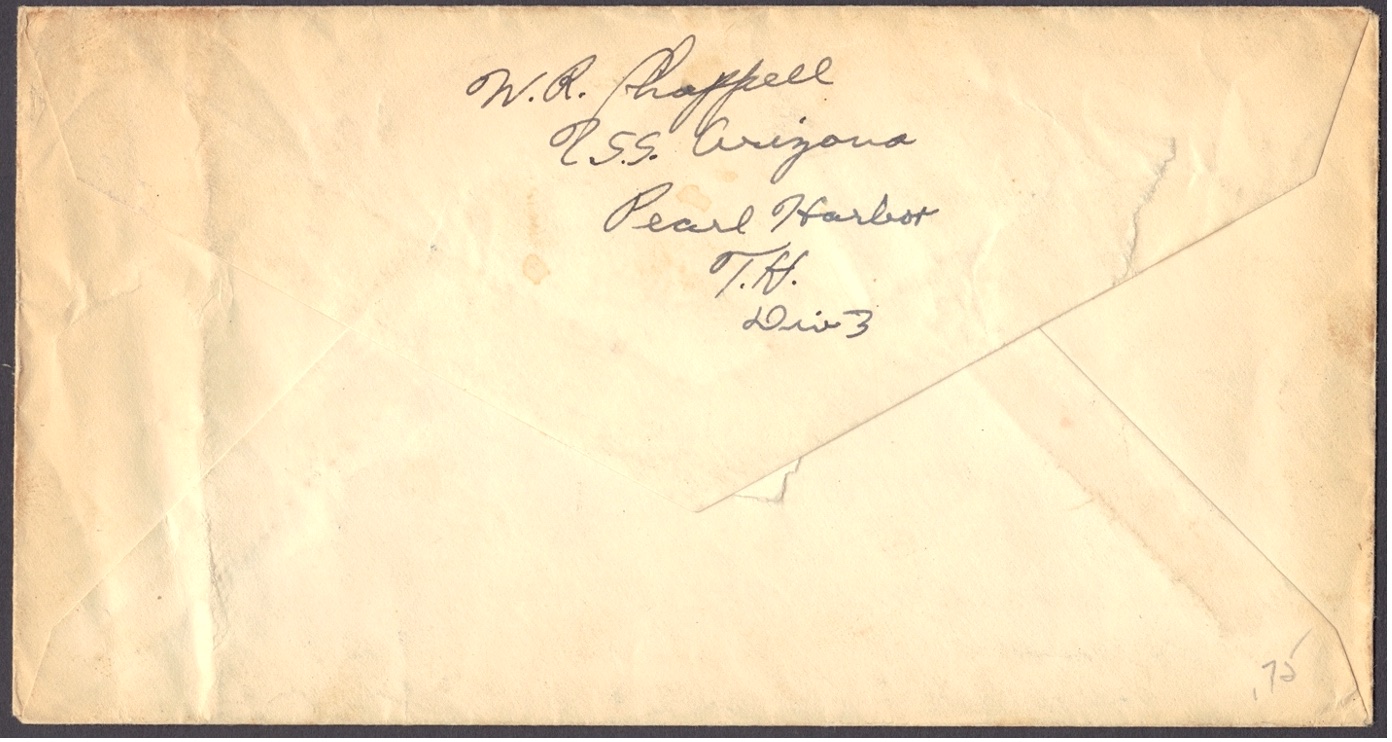 W. R. Chappell
U.S.S. Arizona
Pearl Harbor
T.H.
Div 3
.75